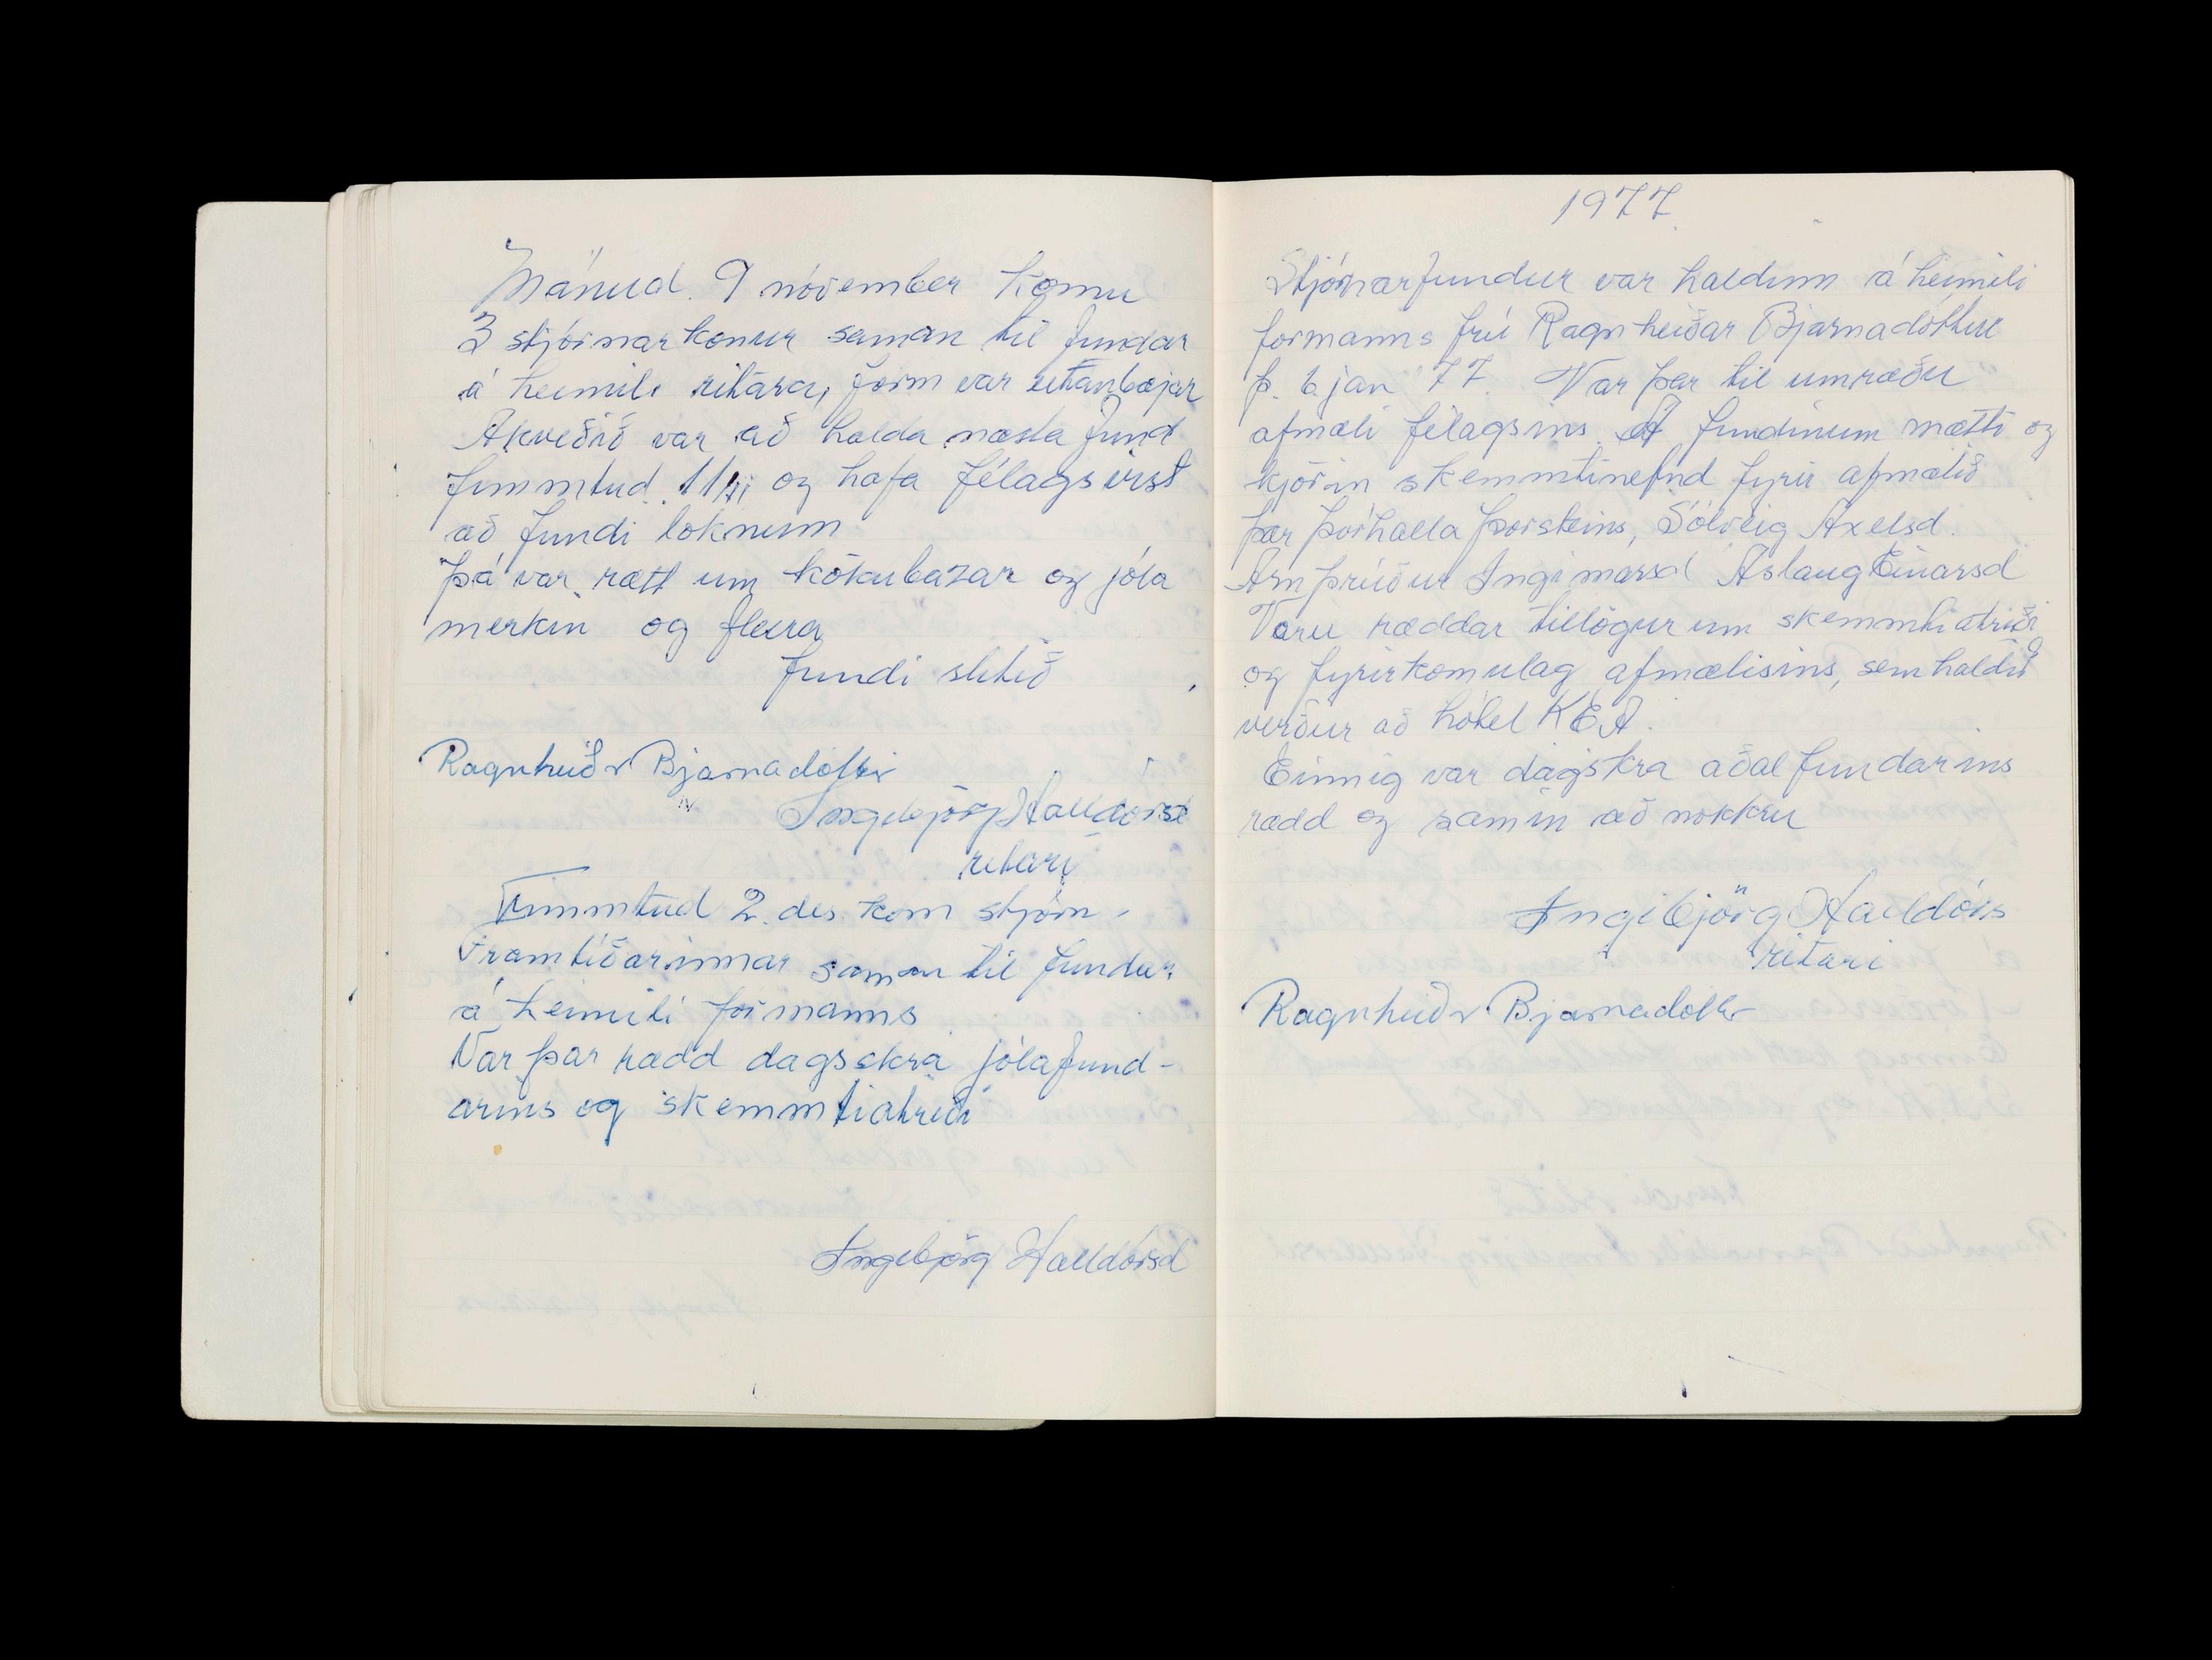 Mánud. 9 nóvember komu
3 stjórnarkonur saman til fundar
á heimili ritara, form var utanbæjar
Ákveðið var að halda næsta fund
fimmtud. 11/11 og hafa félagsvist
að fundi loknum
Þá var rætt um kökubazar og jóla
merkin og fleira
fundi slitið
Ragnheiðr Bjarnadóttir
Ingibjörg Halldórsd
ritari
Fimmtud 2. des kom stjórn
Framtíðarinnar saman til fundar
á heimili formanns
Var þar rædd dagsskrá jólafund-
arins og skemmtiatriði
Ingibjörg Halldórsd
1977
Stjórnarfundur var haldinn á heimili
formanns frú Ragnheiðar Bjarnadóttur
þ. 6 jan '77. Var þar til umræðu
afmæli félagsins. Á fundinum mætti og
kjörin skemmtinefnd fyrir afmælið
þær Þórhalla Þorsteins, Sólveig Axelsd.
Arnþrúður Ingimarsd Áslaug Einarsd
Voru ræddar tillögur um skemmtiatriði
og fyrirkomulag afmælisins, sem haldið
verður að hótel KEA.
Einnig var dagskra aðalfundarins
rædd og samin að nokkru
Ingibjörg Halldórs
ritari
Ragnheiðr Bjarnadóttr